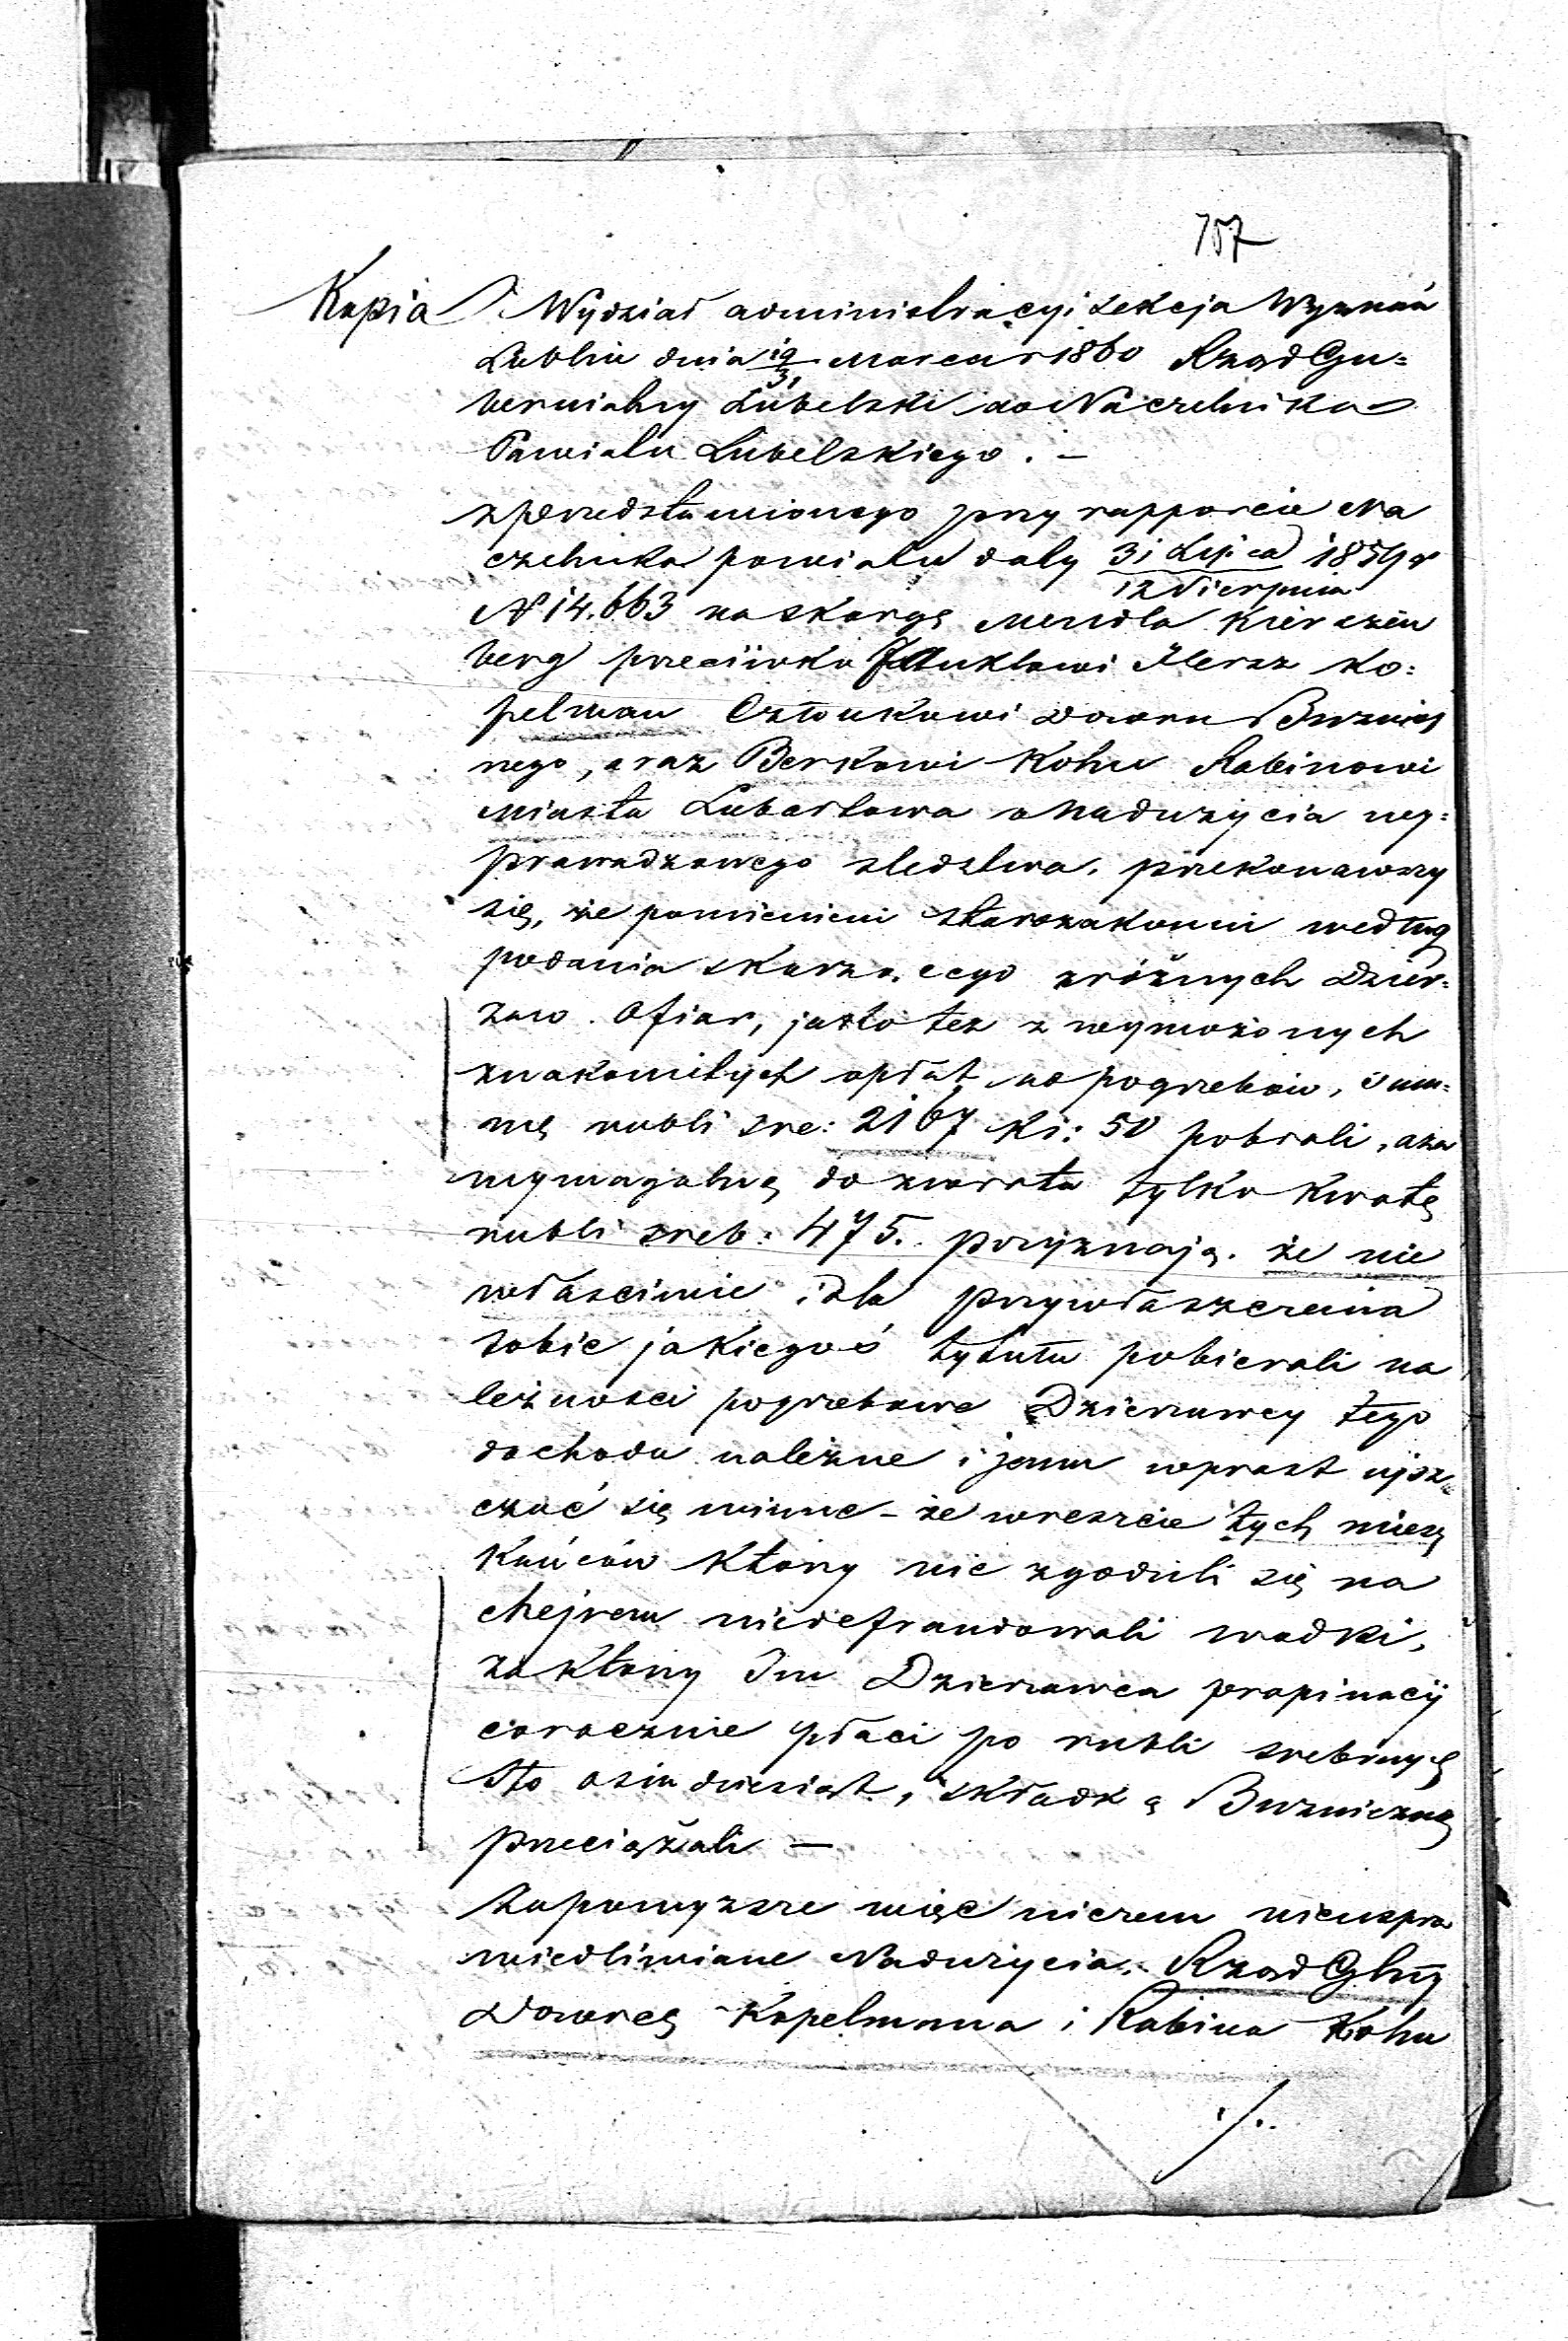 757
Kopia Wydział administracyi sekcja Wyznań
Lublin dnia 19/31 Marca r 1860 Rząd Gu=
bernialny Lubelski do Naczelnika
Powiatu Lubelskiego. —
z przedstawionego przy rapporcie Na
czelnika powiatu daty 31 Lipca / 12 Sierpnia 1859 r
N 14.663 na skargę Mendla Kierszen
berg przeciwko Hersz Ko:
pelman Członkowi Dozoru Bużnicz
nego, oraz Berkowi Kohn Rabinowi
Miasta Lubartowa o Nadużycia wy=
prowadzonego sledztwa, przekonawszy
się, że pomienieni starozakonni według
podania skarzącego z różnych Dzier=
zaw. Ofiar, jako też z wymożonych
znakomitych opłat od pogrzebów, Sum=
mę rubli sre: 2167 ko: 50 pobrali, a za
wymagalną do zwrotu tylko kwotę
rubli sreb: 475. przyznają. że nie
właściwie i dla przywłaszczenia
sobie jakiegoś tytułu pobierali na
leżności pogrzebowe Dzierzawcy tego
dochodu należne i jemu wprost uisz=
czać się winne – że wreszcie tych miesz
kańców którzy nie zgodzili się na
chejrem niedefraudowali wodki,
za który Im Dzierzawca propinacyi
corocznie płaci po rubli srebrnych
sto osimdziesiąt, składką Bużniczną
przeciążali —
Za powyższe więc niczem nieuspra
wiedliwiane Nadużycia, Rząd Glny
Dozorcę Kopelmana i Rabina Kohn
./.